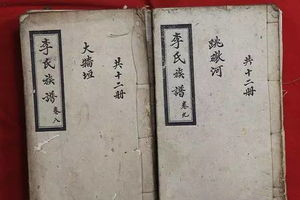 李氏族譜 卷八
大猪垭
共十二册
李氏族譜 卷九
跳磴河
共十二册